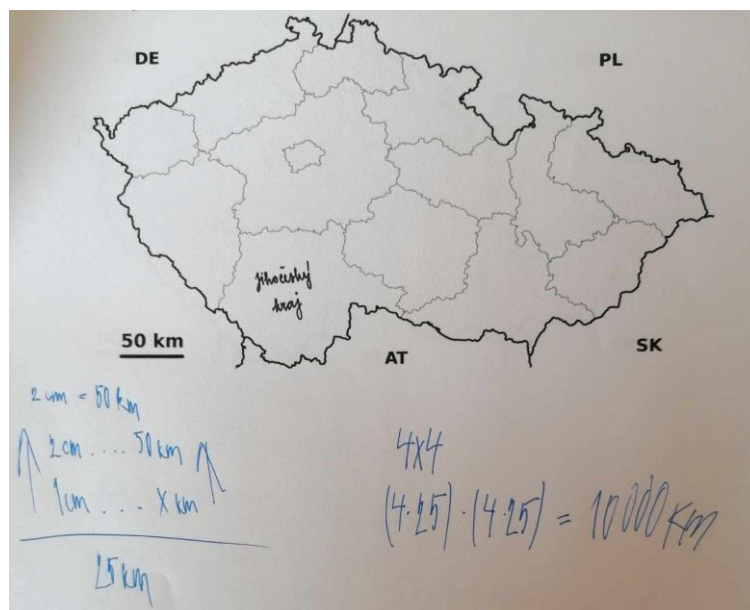 DE
PL
Jihočeský
kraj
50 km
AT
SK
2 cm = 50 km
2 cm .... 50 km
1 cm .... x km
25 km
4x4
(4·25) · (4·25) = 10 000 km